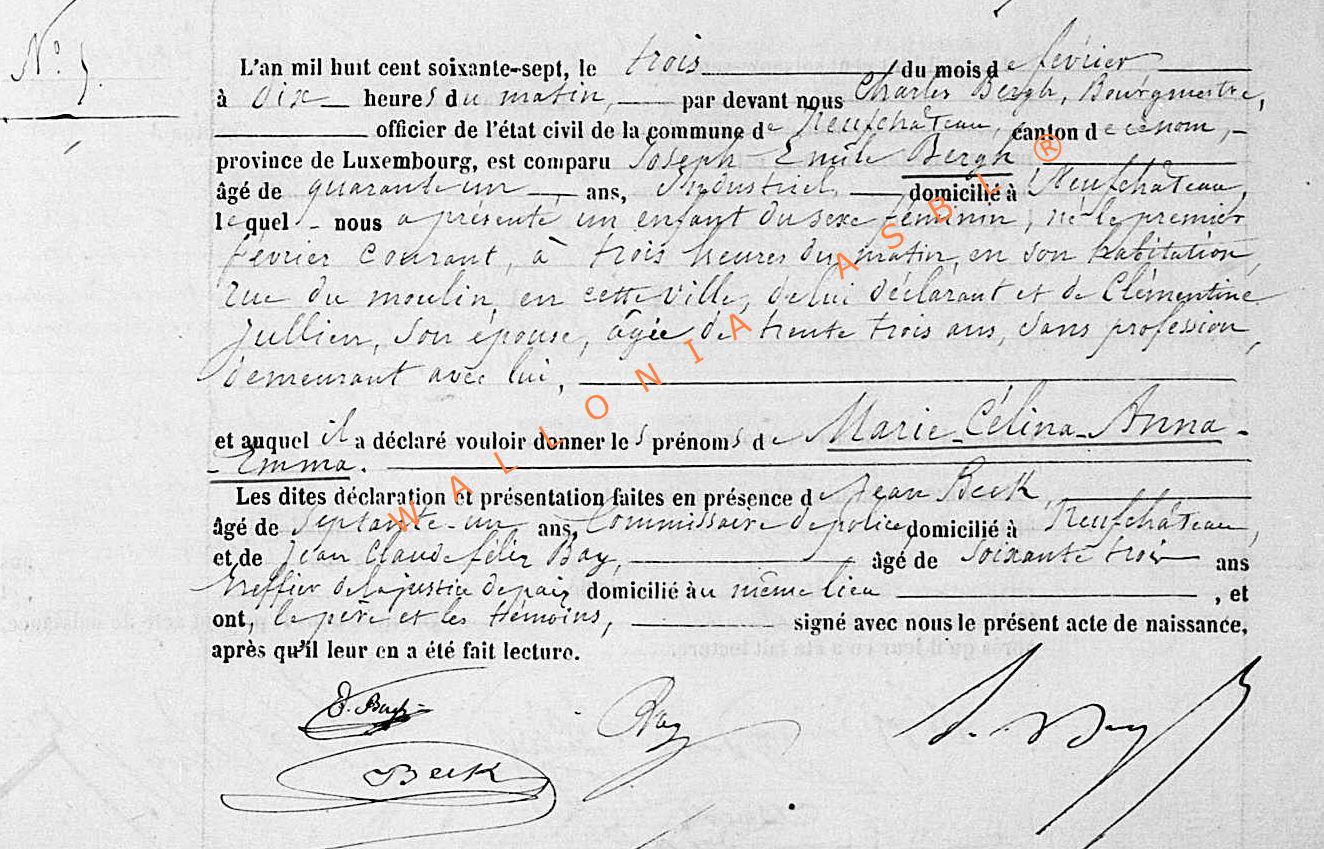 N° 5.
L'an mil huit cent soixante-sept, le trois du mois de février
à dix heures du matin, par devant nous Charles Bergh, Bourgmestre,
officier de l'état civil de la commune de Neufchâteau, canton de cenom,
province de Luxembourg, est comparu Joseph Emile Bergh
âgé de quarante un ans, Industriel, domicilié à Neufchâteau,
lequel nous a présenté un enfant du sexe féminin, né le premier
février courant, à trois heures du matin, en son habitation,
rue du moulin, en cette ville, de lui déclarant et de Clémentine
Jullien, son épouse, âgée de trente trois ans, sans profession,
demeurant avec lui,
et auquel il a déclaré vouloir donner les prénoms de Marie-Célina-Anna-
-Emma.
Les dites déclaration et présentation faites en présence de Jean Beck,
âgé de Septante-un ans, Commissaire de police domicilié à Neufchâteau,
et de Jean Claude félix Bay, âgé de soixante trois ans
Greffier de la justice de paix domicilié au même lieu, et
ont, le père et les témoins, signé avec nous le présent acte de naissance,
après qu'il leur en a été fait lecture.
Bay
Beck
WALLONIA ASBL ®